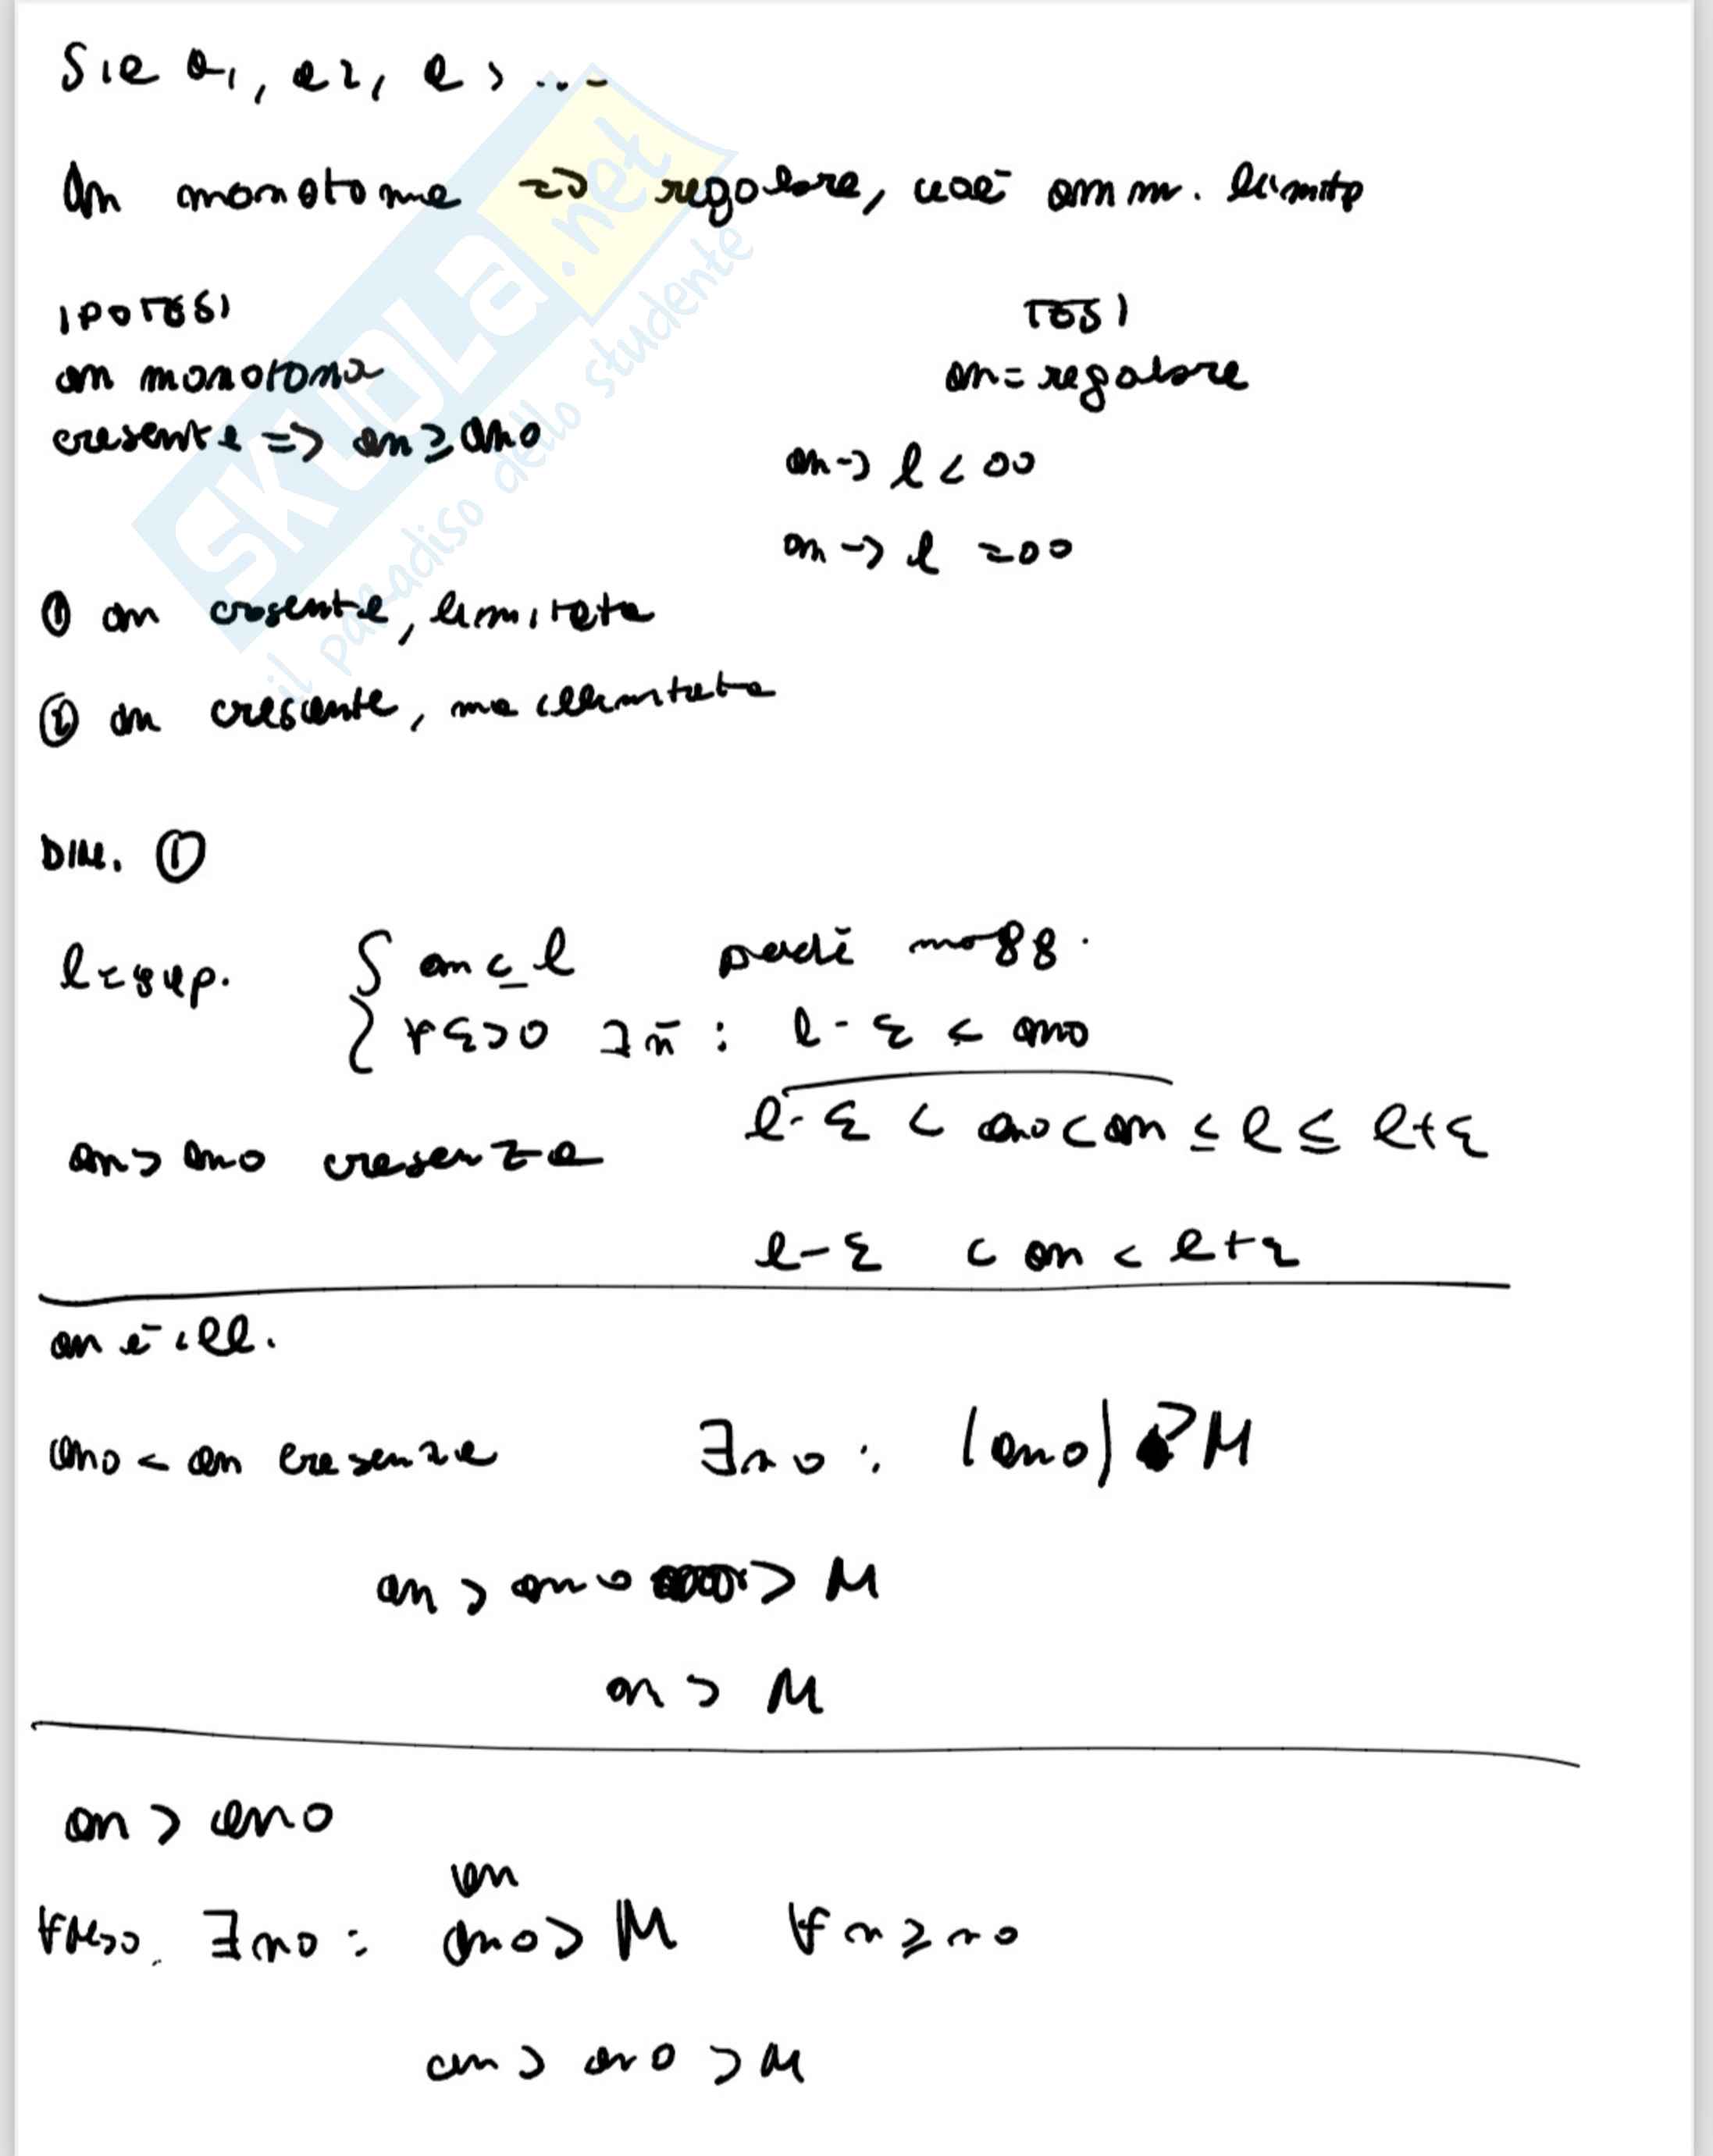 Sia a1, a2, a3 ...
an monotona => regolare, cioè amm. limite
IPOTESI
an monotona
cresente => an ≥ an0
TESI
an = regolare
an -> l < ∞
an -> l = ∞
① an cresente, limitata
② an crescente, ma illimitata
DIM. ①
l = sup. { an ≤ l magg.
∀ε>0 ∃ n̄ : l - ε < an0
an > an0 cresenza
l - ε < an0 < an ≤ l ≤ l+ε
l - ε < an < l+ε
an è ill.
an0 < an cresenza ∃n0 : |an0| > M
an > an0 > M
an > M
an > an0
an
∀M>0. ∃n0 : an0 > M ∀ n ≥ n0
an > an0 > M
SKUOLA.net
il paradiso dello studente